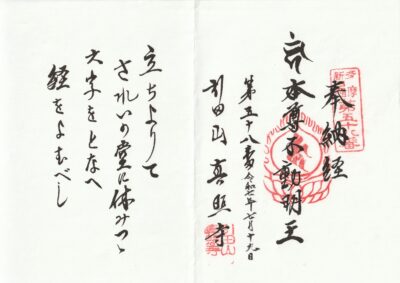 奉納経
本尊不動明王
第五十八番 令和七年
引田山 真照寺
立ちよりて
されいの堂に休みつゝ
六字をとなへ
経をよむべし